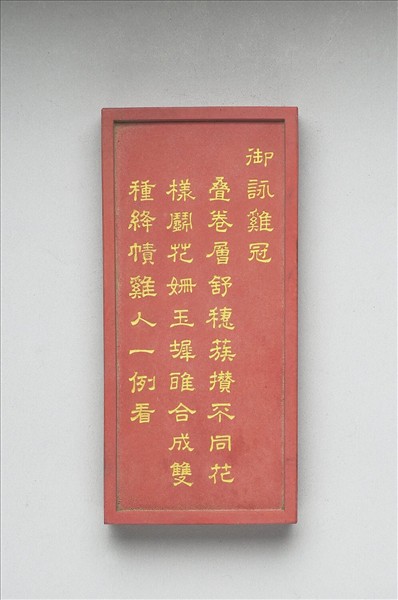 御詠雞冠
疊卷層舒穗蔟攢不同花
樣鬭花姍玉墀雎合成雙
種絳幘雞人一例看